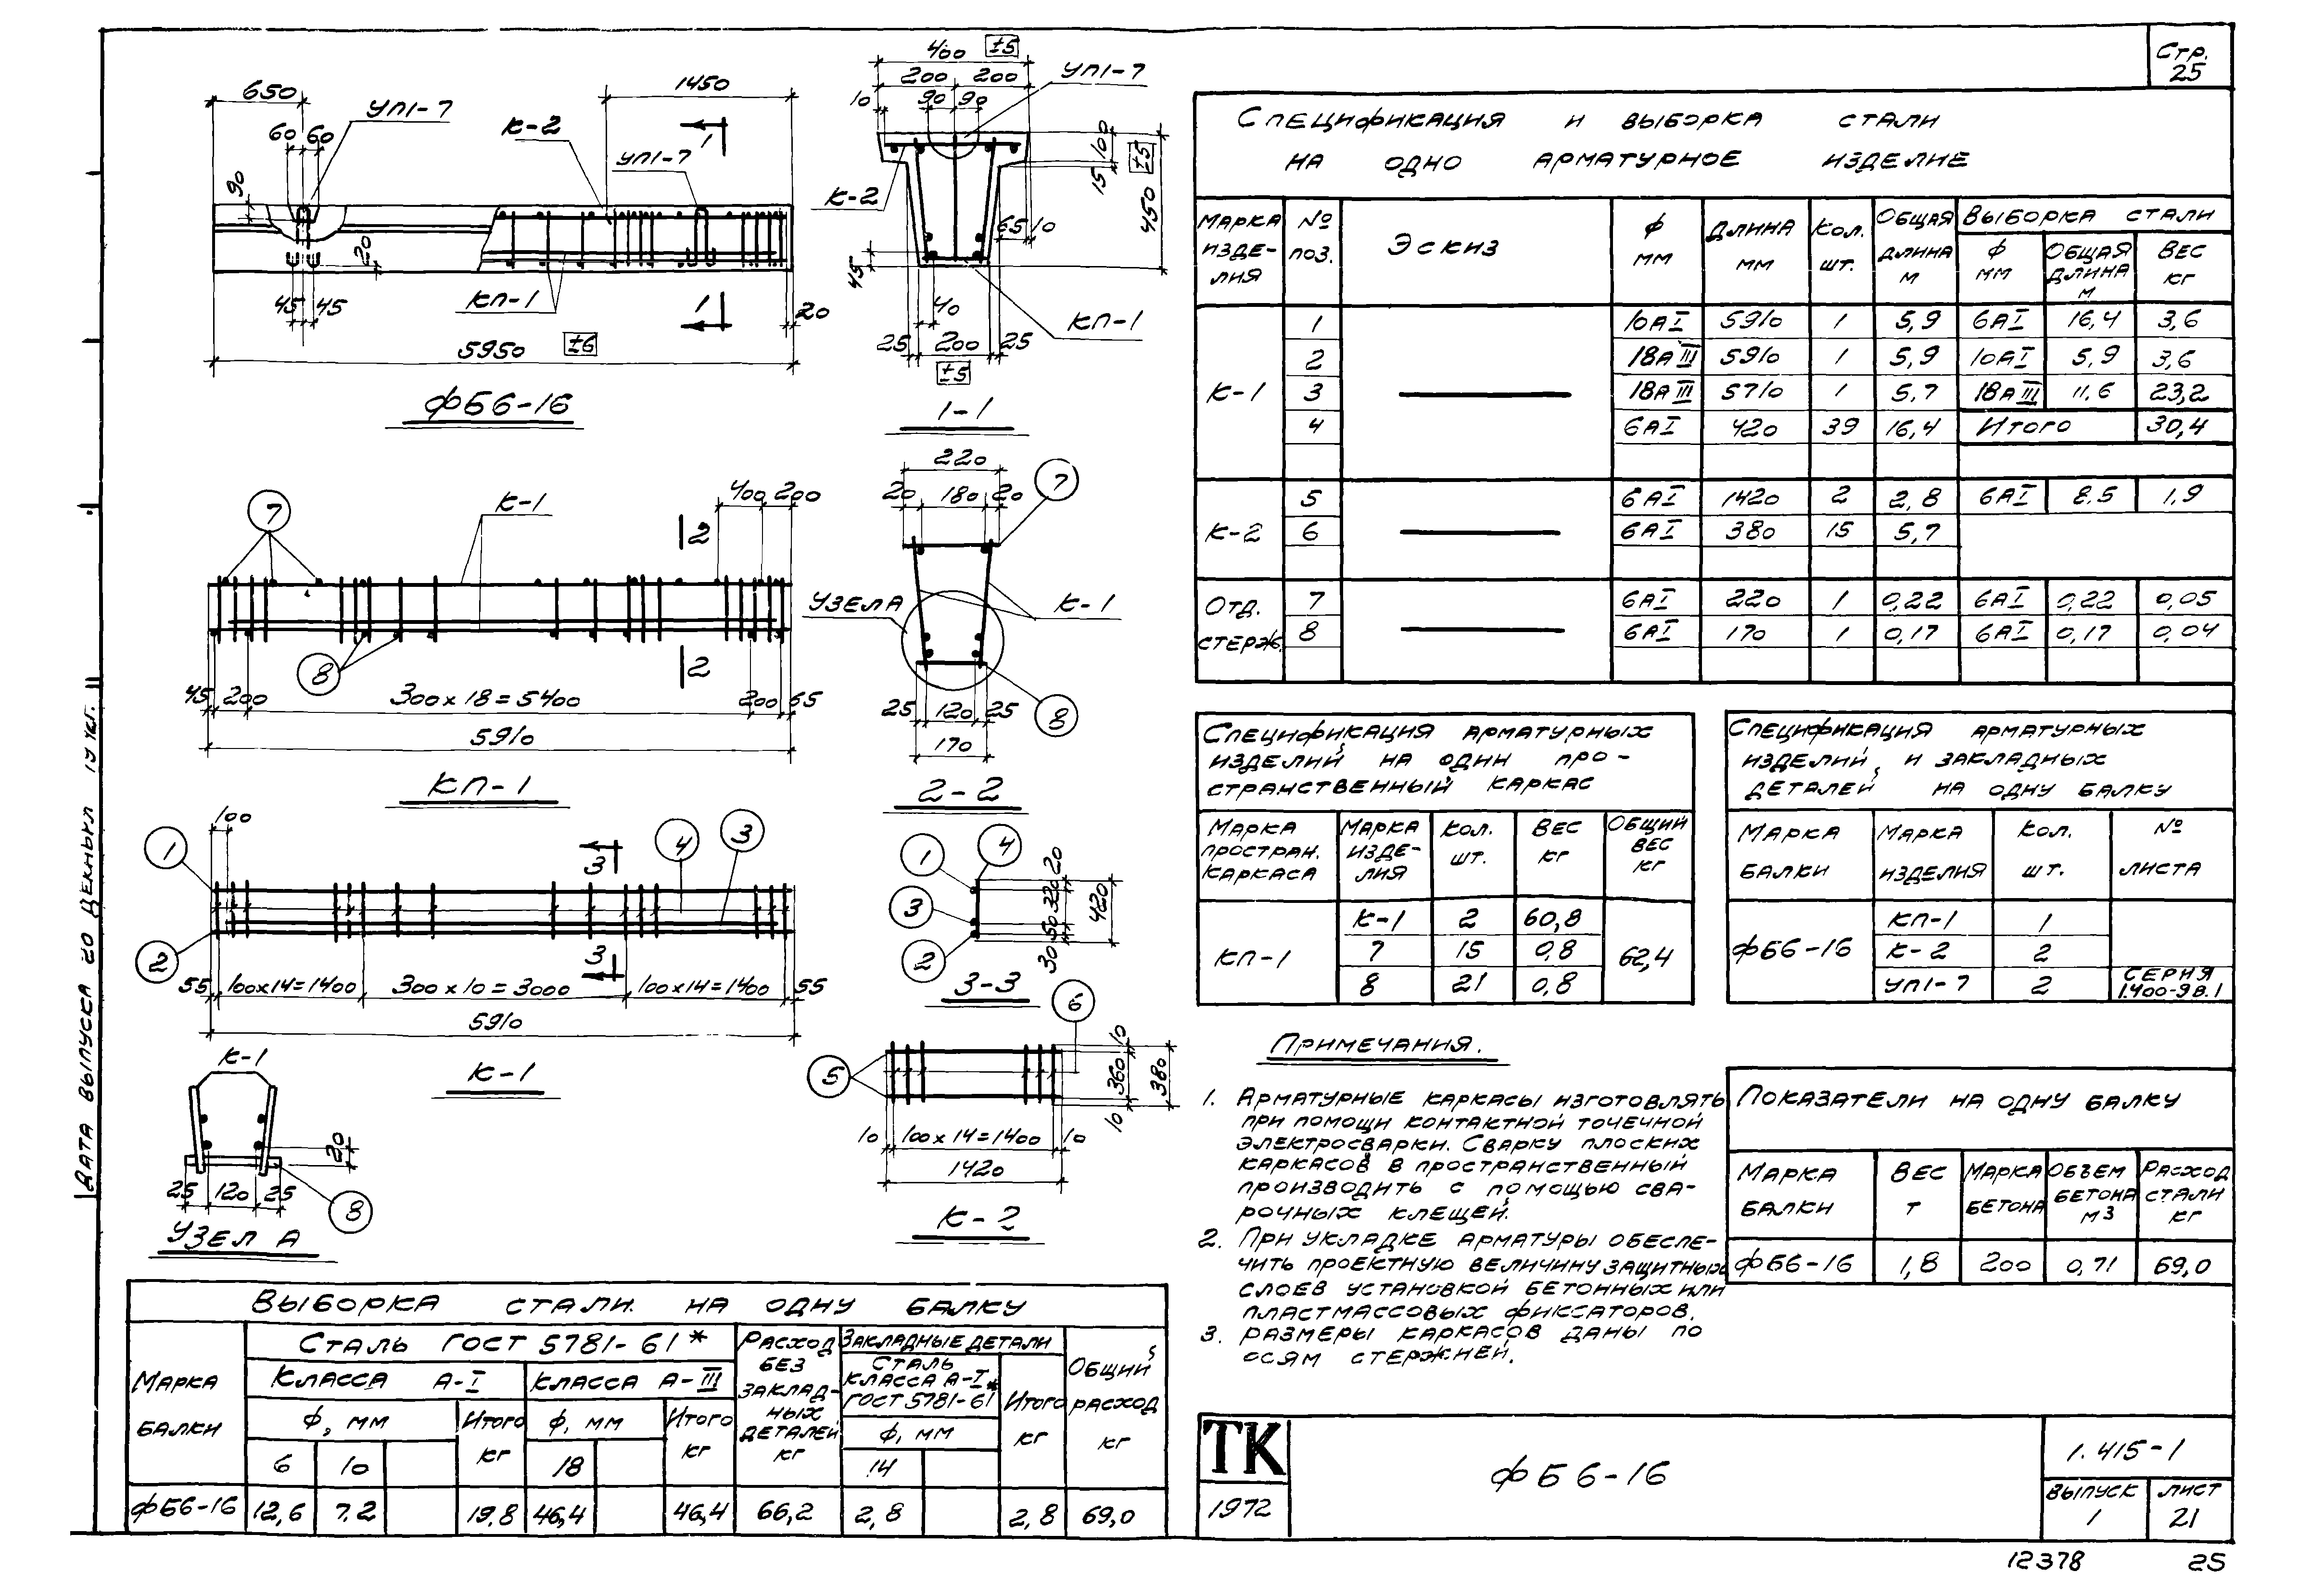 Стр.
25
650
1450
УП1-7
60 60
К-2
УП1-7
1
90
20
45 45
КП-1
1
20
5950 ±6
ФБ6-16
400 ±5
200 200
УП1-7
10 90 90
100
15
±5
450
К-2
65 10
45
40
КП-1
25 200 25
±5
1-1
7
К-1
400 200
2
8
2
45 200 300х18=5400 200 65
5910
КП-1
220
20 180 20
7
УЗЕЛ А
К-1
25 120 25
8
170
2-2
100
1
3
4
3
2
3
55 100х14=1400 300х10=3000 100х14=1400 55
5910
К-1
1
4
3
2
20
320
50
30
420
3-3
6
5
10
360
380
10
10 100х14=1400 10
1420
К-2
К-1
20
25 120 25
8
УЗЕЛ А
СПЕЦИФИКАЦИЯ И ВЫБОРКА СТАЛИ
НА ОДНО АРМАТУРНОЕ ИЗДЕЛИЕ
МАРКА ИЗДЕ-ЛИЯ № ПОЗ. ЭСКИЗ Ф ММ ДЛИНА ММ КОЛ. ШТ. ОБЩАЯ ДЛИНА М ВЫБОРКА СТАЛИ
Ф ММ ОБЩАЯ ДЛИНА М ВЕС КГ
К-1 1 10АI 5910 1 5,9 6АI 16,4 3,6
2 18АIII 5910 1 5,9 10АI 5,9 3,6
3 18АIII 5710 1 5,7 18АIII 11,6 23,2
4 6АI 420 39 16,4 Итого 30,4
К-2 5 6АI 1420 2 2,8 6АI 8,5 1,9
6 6АI 380 15 5,7
ОТД. СТЕРЖ. 7 6АI 220 1 0,22 6АI 0,22 0,05
8 6АI 170 1 0,17 6АI 0,17 0,04
СПЕЦИФИКАЦИЯ АРМАТУРНЫХ
ИЗДЕЛИЙ НА ОДИН ПРО-
СТРАНСТВЕННЫЙ КАРКАС
МАРКА ПРОСТРАН. КАРКАСА МАРКА ИЗДЕ-ЛИЯ КОЛ. ШТ. ВЕС КГ ОБЩИЙ ВЕС КГ
КП-1 К-1 2 60,8 62,4
7 15 0,8
8 21 0,8
СПЕЦИФИКАЦИЯ АРМАТУРНЫХ
ИЗДЕЛИЙ И ЗАКЛАДНЫХ
ДЕТАЛЕЙ НА ОДНУ БАЛКУ
МАРКА БАЛКИ МАРКА ИЗДЕЛИЯ КОЛ. ШТ. № ЛИСТА
ФБ6-16 КП-1 1
К-2 2
УП1-7 2 СЕРИЯ 1.400-9 В.1
ПРИМЕЧАНИЯ.
1. АРМАТУРНЫЕ КАРКАСЫ ИЗГОТОВЛЯТЬ
ПРИ ПОМОЩИ КОНТАКТНОЙ ТОЧЕЧНОЙ
ЭЛЕКТРОСВАРКИ. СВАРКУ ПЛОСКИХ
КАРКАСОВ В ПРОСТРАНСТВЕННЫЙ
ПРОИЗВОДИТЬ С ПОМОЩЬЮ СВА-
РОЧНЫХ КЛЕЩЕЙ.
2. ПРИ УКЛАДКЕ АРМАТУРЫ ОБЕСПЕ-
ЧИТЬ ПРОЕКТНУЮ ВЕЛИЧИНУ ЗАЩИТНЫХ
СЛОЕВ УСТАНОВКОЙ БЕТОННЫХ ИЛИ
ПЛАСТМАССОВЫХ ФИКСАТОРОВ.
3. РАЗМЕРЫ КАРКАСОВ ДАНЫ ПО
ОСЯМ СТЕРЖНЕЙ.
ПОКАЗАТЕЛИ НА ОДНУ БАЛКУ
МАРКА БАЛКИ ВЕС Т МАРКА БЕТОНА ОБЪЕМ БЕТОНА М3 РАСХОД СТАЛИ КГ
ФБ6-16 1,8 200 0,71 69,0
ВЫБОРКА СТАЛИ НА ОДНУ БАЛКУ
МАРКА БАЛКИ СТАЛЬ ГОСТ 5781-61* РАСХОД БЕЗ ЗАКЛАД-НЫХ ДЕТАЛЕЙ КГ ЗАКЛАДНЫЕ ДЕТАЛИ ОБЩИЙ РАСХОД КГ
КЛАССА А-I КЛАССА А-III СТАЛЬ КЛАССА А-I ГОСТ 5781-61* ИТОГО КГ
Ф, ММ ИТОГО КГ Ф, ММ ИТОГО КГ Ф, ММ
6 10 18 14
ФБ6-16 12,6 7.2 19,8 46,4 46,4 66,2 2,8 2,8 69,0
ТК
1972
ФБ6-16
1.415-1
ВЫПУСК 1
ЛИСТ 21
12378 25
ДАТА ВЫПУСКА 20